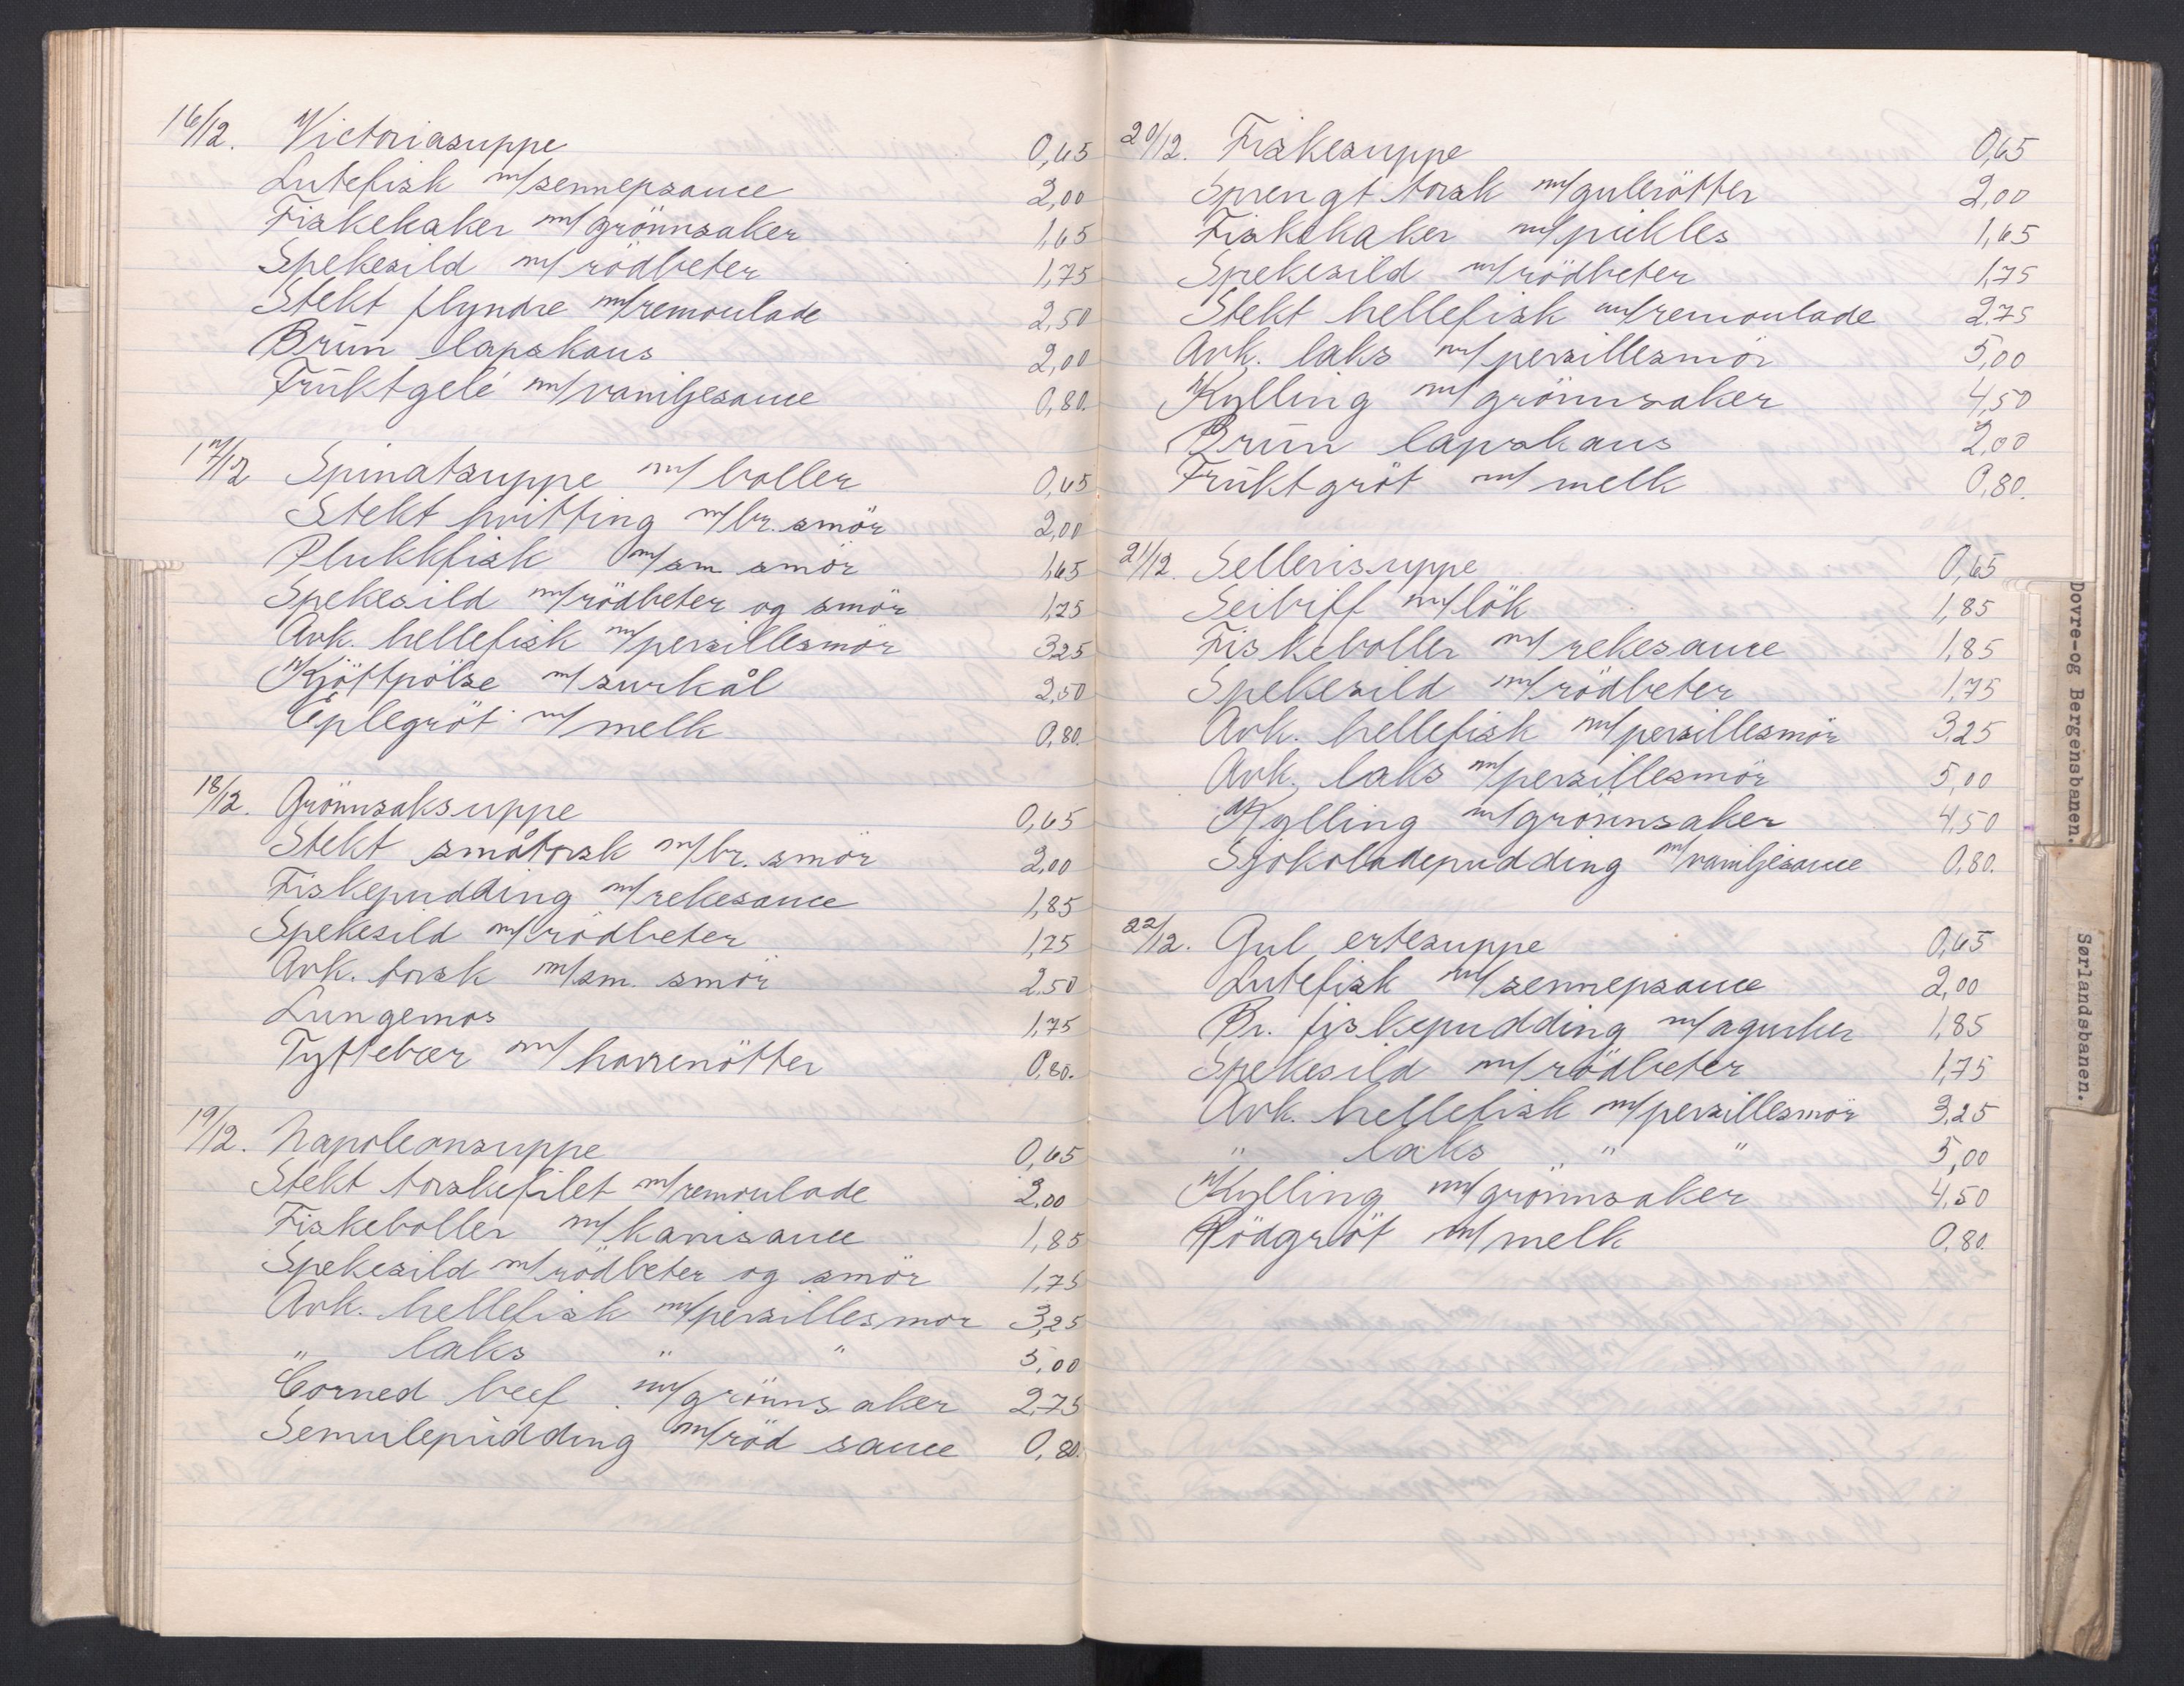 16/12. Victoriasuppe 0,65
Lutefisk m/sennepsauce 2,00
Fiskekaker m/grönnsaker 1,65
Spekesild m/rödbeter 1,75
Stekt flyndre m/remoulade 2,50
Brun lapskaus 2,00
Fruktgelé m/vaniljesauce 0,80.
17/12 Spinatsuppe m/boller 0,65
Stekt hvitting m/br. smör 2,00
Plukkfisk m/sm smör 1,65
Spekesild m/rödbeter og smör 1,75
Avk. hellefisk m/persillesmör 3,25
Kjöttpölse m/surkål 2,50
Eplegröt m/melk 0,80.
18/12. Grönnsaksuppe 0,65
Stekt småtorsk m/br. smör 2,00
Fiskepudding m/rekesauce 1,85
Spekesild m/rödbeter 1,75
Avk. torsk m/sm. smör 2,50
Lungemos 1,75
Tyttebær m/havrenötter 0,80.
19/12. Napoleonsuppe 0,65
Stekt torskefilet m/remoulade 2,00
Fiskeboller m/karrisauce 1,85
Spekesild m/rödbeter og smör 1,75
Avk. hellefisk m/persillesmör 3,25
" laks " " 5,00
Corned beef m/grönnsaker 2,75
Semulepudding m/röd sauce 0,80.
20/12. Fiskesuppe 0,65
Sprengt torsk m/gulerötter 2,00
Fiskekaker m/pickles 1,65
Spekesild m/rödbeter 1,75
Stekt hellefisk m/remoulade 2,75
Avk. laks m/persillesmör 5,00
Kylling m/grönnsaker 4,50
Brun lapskaus 2,00
Fruktgröt m/melk 0,80.
21/12. Sellerisuppe 0,65
Seibiff m/lök 1,85
Fiskeboller m/rekesauce 1,85
Spekesild m/rödbeter 1,75
Avk. hellefisk m/persillesmör 3,25
Avk. laks m/persillesmör 5,00
Kylling m/grönnsaker 4,50
Sjokoladepudding m/vaniljesauce 0,80.
22/12. Gul ertesuppe 0,65
Lutefisk m/sennepsauce 2,00
Br. fiskepudding m/agurker 1,85
Spekesild m/rödbeter 1,75
Avk. hellefisk m/persillesmör 3,25
" laks " " 5,00
Kylling m/grönnsaker 4,50
Rödgröt m/melk 0,80.
Dovre-og Bergensbanen.
Sørlandsbanen.